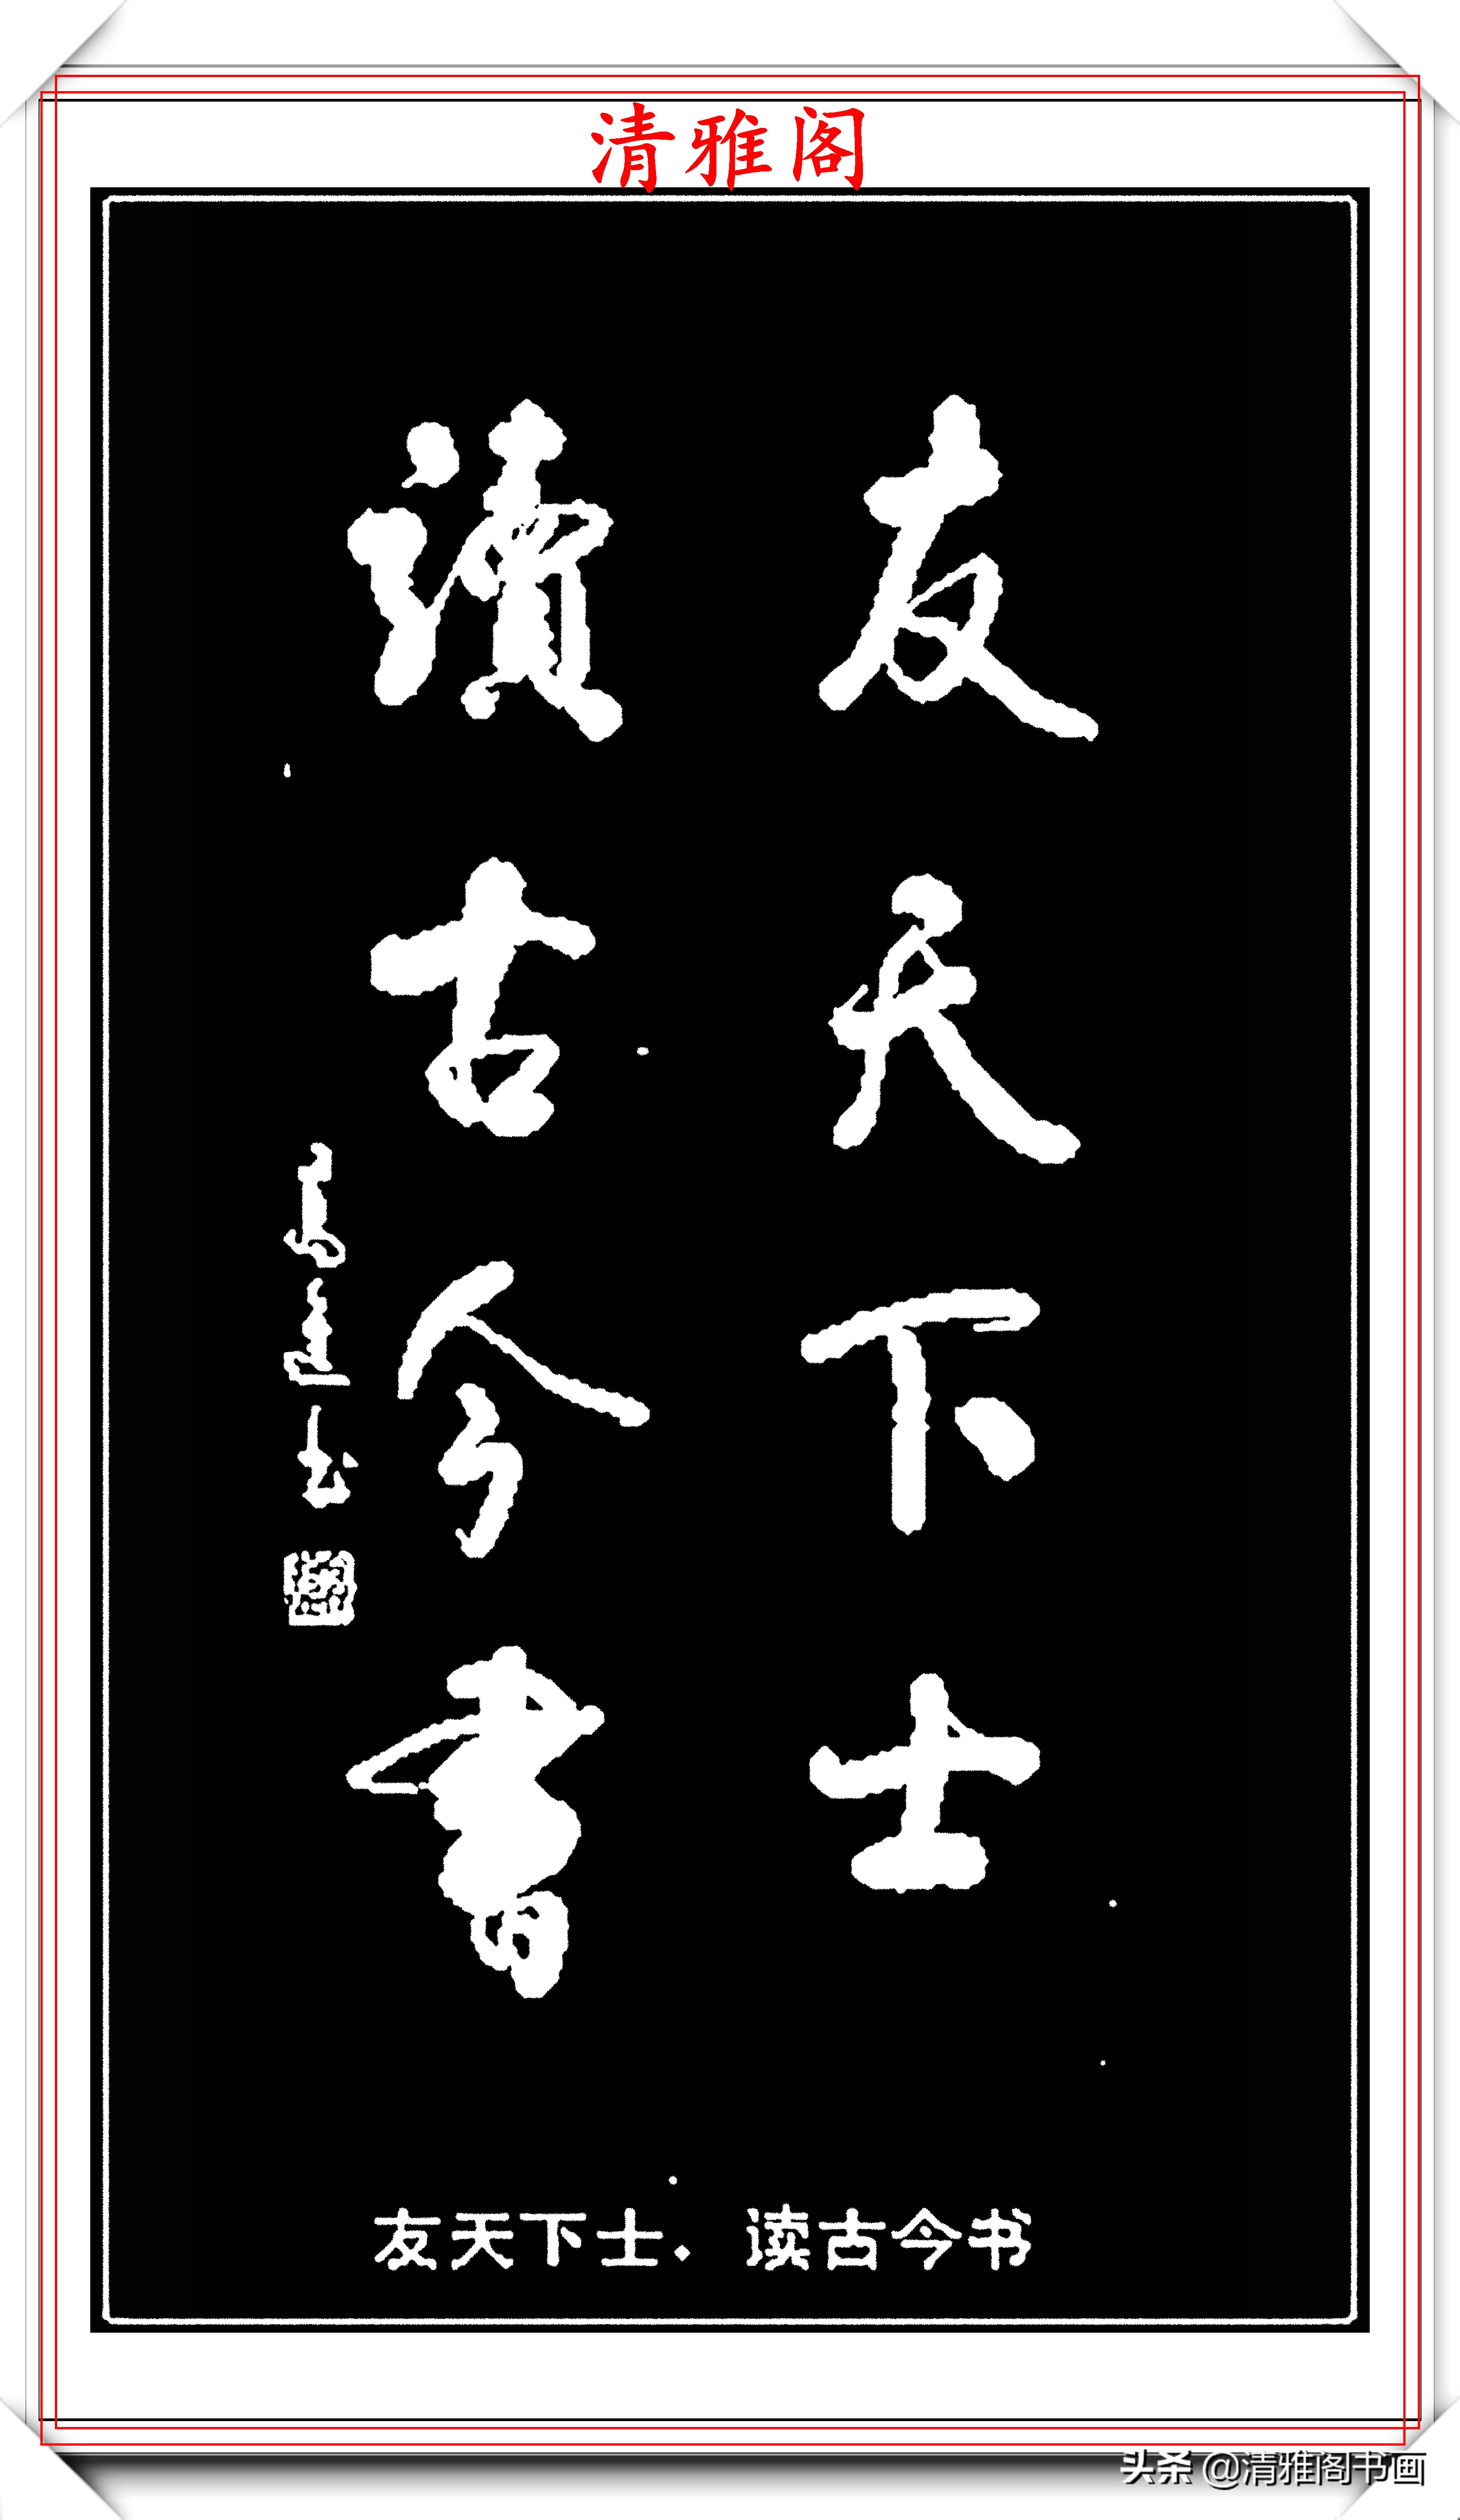 清雅阁
友天下士
讀古今書
友天下士. 读古今书
头条 @清雅阁书画